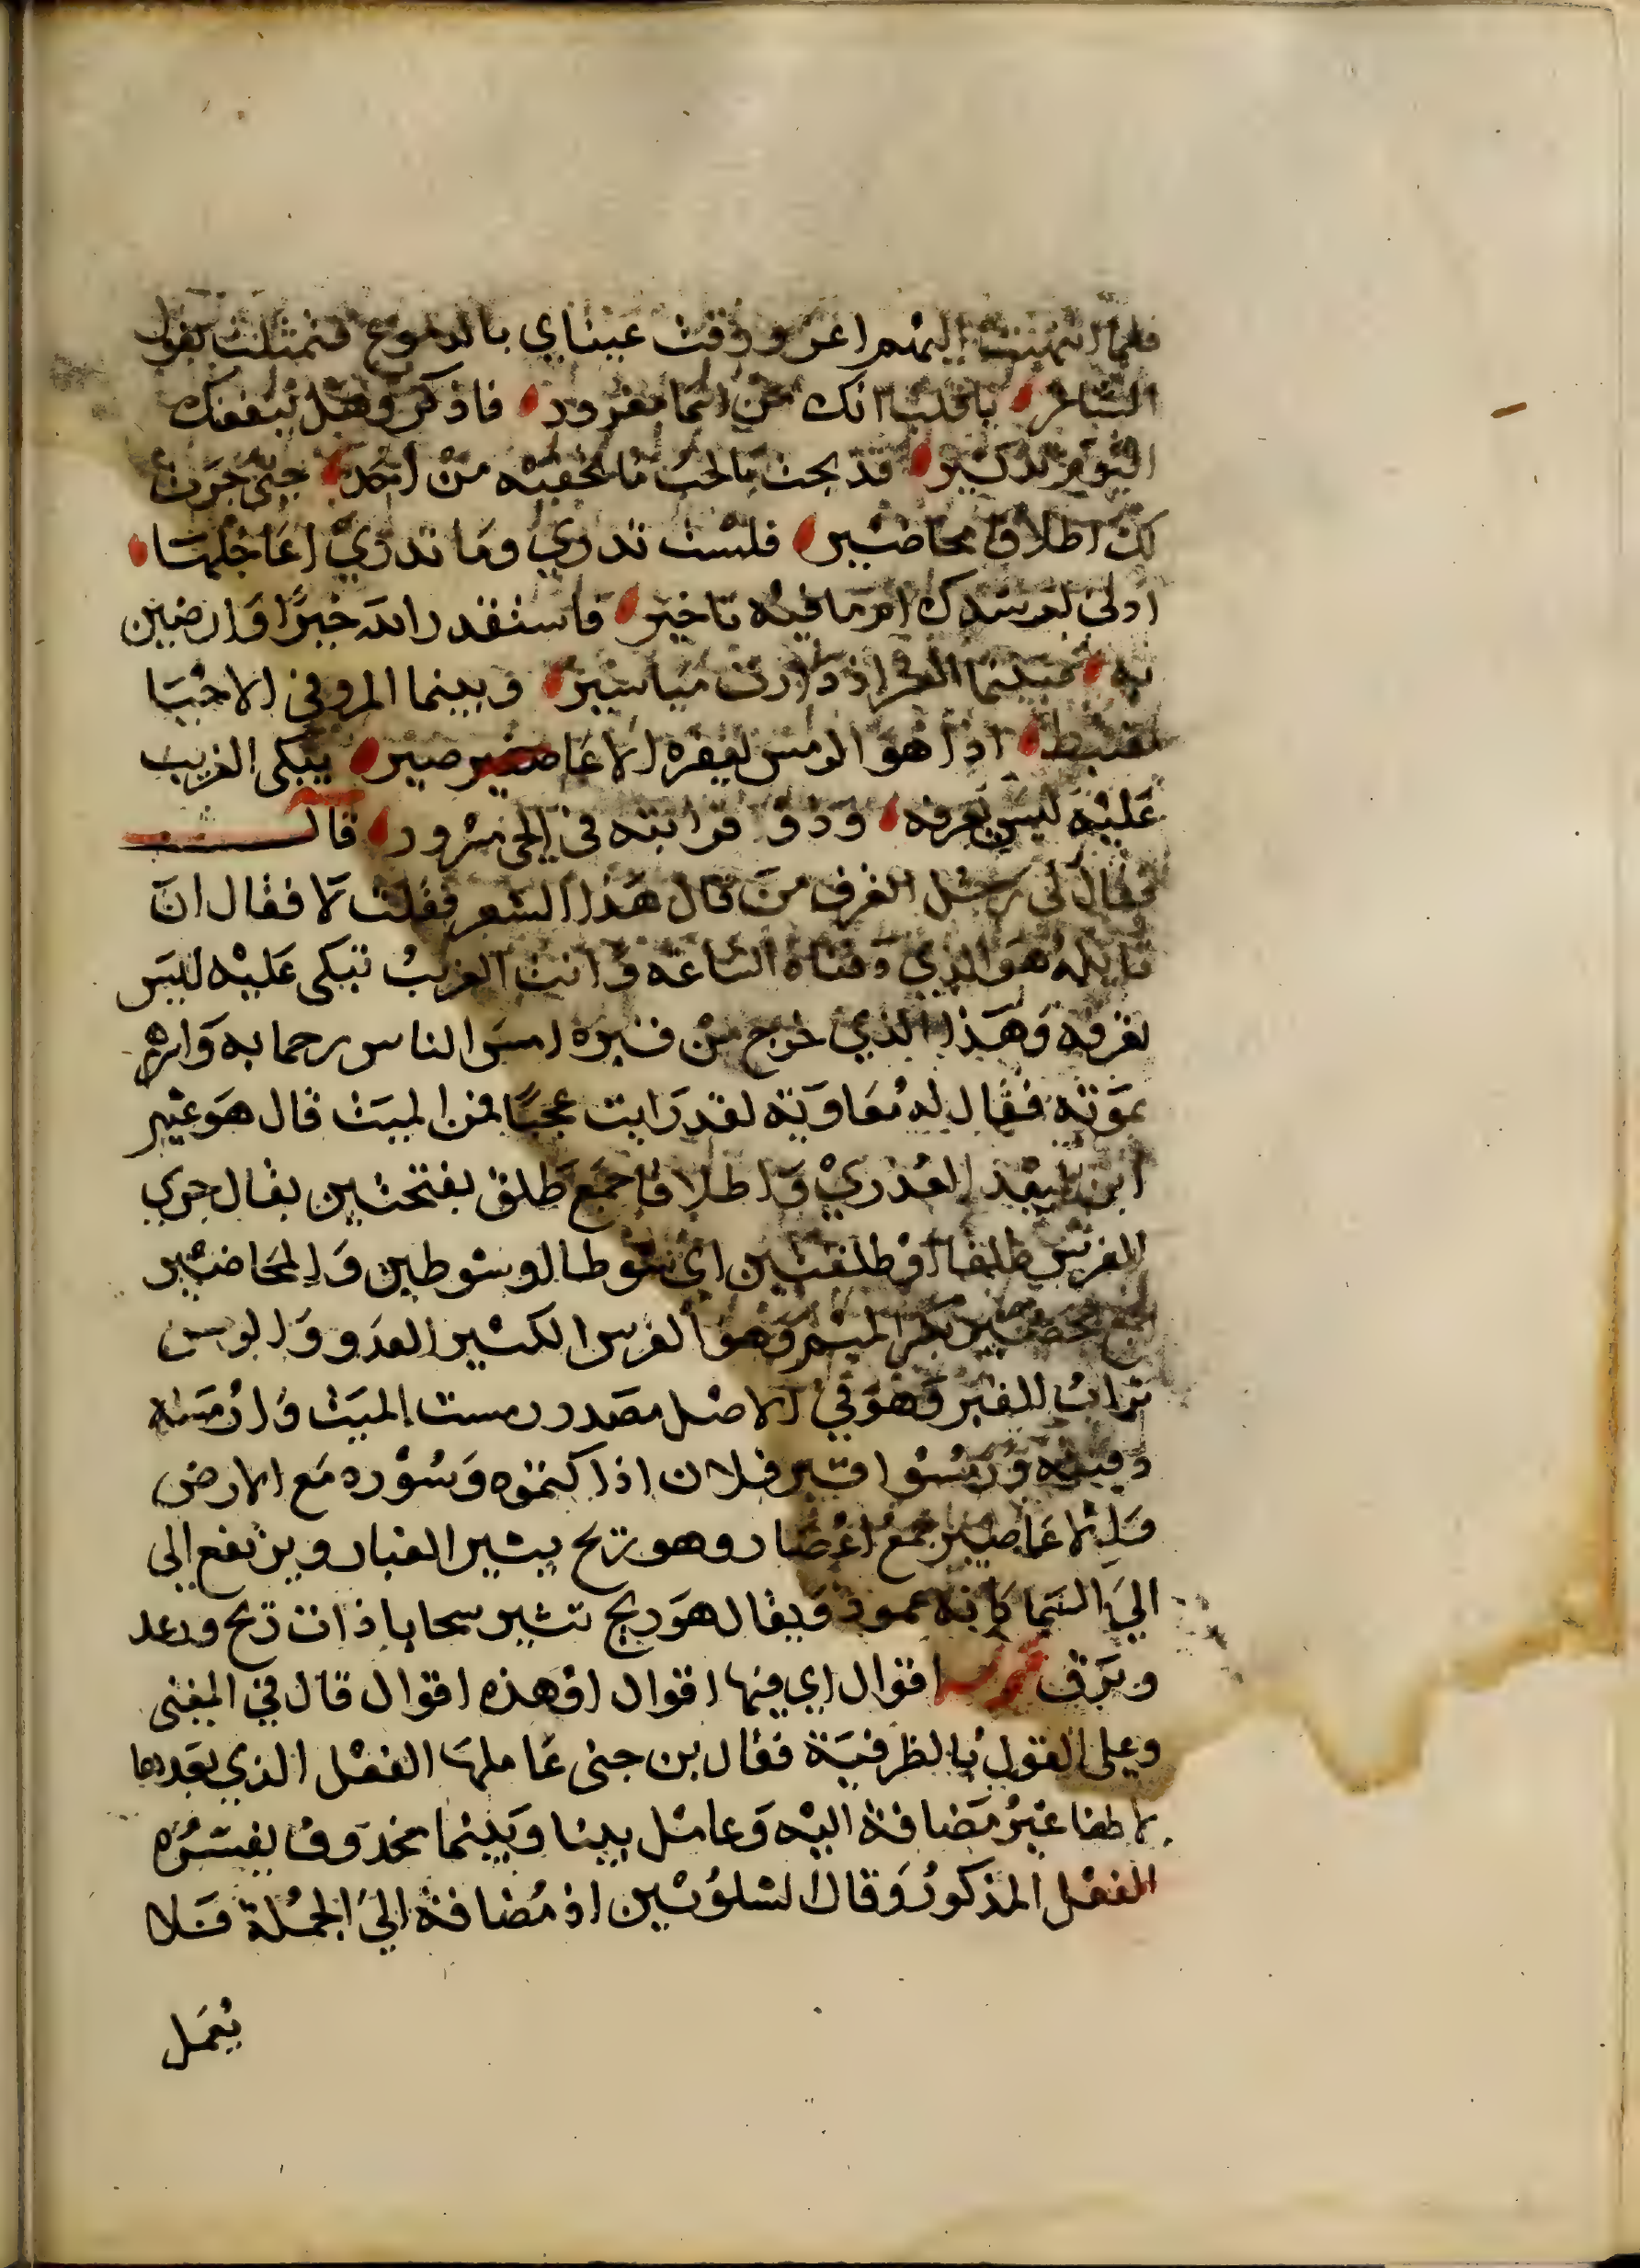 فلما انتهيت اليهم اغرورقت عيناي بالدموع فتمثلت بقول
الشاعر يا قلب انك من اسما مغرور فاذكر وهل ينفعك
اليوم تذكير قد بحت بالحب ما تخفيه من احد حتى جرت
لك اطلاقا محاضير فلست تدري وما تدري اعاجلها
ادنى لمرشدك ام ما فيه تاخير فاستقدر الله خيرا وارضين
به فبينما العسر اذ دارت مياسير وبينما المر في الاحيا
مغتبط اذا هو الرمس تعفره الاعاصير يبكي الغريب
عليه ليس يعرفه وذو قرابته في الحي مسرور قال
فقال لي رجل اتعرف من قال هذا الشعر فقلت لا فقال ان
قايله هو الذي دفناه الساعة وانت الغريب تبكي عليه ليس
تعرفه وهذا الذي خرج من قبره امس الناس رحما به واسرهم
بموته فقال له معاوية لقد رايت عجبا فمن الميت قال هو عثير
ابن لبيد العذري واطلاقا جمع طلق بفتحتين يقال جري
الفرس طلقا او طلقين اي شوطا او شوطين والمحاضير
جمع محضير بكسر الميم وهو الفرس الكثير العدو والرمس
تراب القبر وهو في الاصل مصدر رمست الميت وارمسته
دفنته ورمسوا قبر فلان اذا كتموه وسوره مع الارض
والاعاصير جمع اعصار وهو ريح يثير الغبار ويرتفع الى
الي السما كانه عمود ويقال هو ريح تثير سحابا ذات ريح ورعد
وبرق قوله اقوال اي فيها اقوال او هذه اقوال قال في المغنى
وعلى القول بالظرفية فقال بن جنى عاملها الفعل الذي بعدها
لانها غير مضافة اليه وعامل بينا وبينما محذوف يفسره
الفعل المذكور وقال الشلوبين اذ مضافة الي الجملة فلا
يعمل